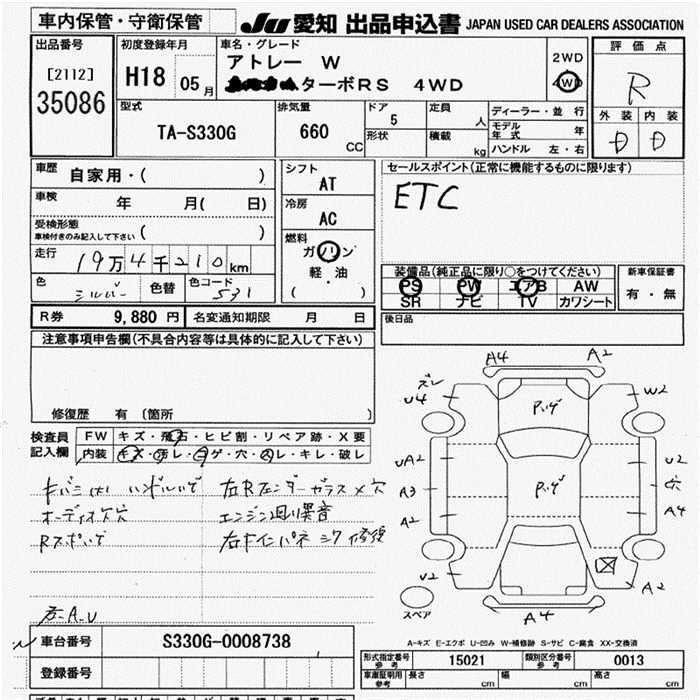 車内保管・守衛保管
JU 愛知 出品申込書 JAPAN USED CAR DEALERS ASSOCIATION
出品番号
[2112]
35086
初度登録年月
H18 05月
車名・グレード
アトレー W
ターボRS 4WD
2WD
4WD
評価点
R
外装 内装
D D
型式
TA-S330G
排気量
660 CC
ドア
5
形状
定員
人
積載
kg
ディーラー・並行
モデル年式 年
ハンドル 左・右
車歴
自家用・( )
車検
年 月( 日)
受検形態
車検付きのみ記入して下さい ( )
走行
19万4千210km
色
シルバー
色替
色コード
S31
シフト
AT
冷房
AC
燃料
ガソリン
軽・油
( )
セールスポイント(正常に機能するものに限ります)
ETC
装備品(純正品に限り○をつけてください)
PS PW エアB AW
SR ナビ TV カワシート
新車保証書
有・無
R券 9,880円 名変通知期限 月 日
後日品
注意事項申告欄(不具合内容等は具体的に記入して下さい)
修復歴 有 〔箇所 〕
検査員記入欄
FW キズ・飛石・ヒビ割・リペア跡・X要
内装 キズ・汚レ・コゲ・穴・スレ・キレ・破レ
オーディオ穴
エンジン廻り異音
A4 A2
ズレ
U4 W2
パゲ
UA2 U2
A3 穴
パゲ
A2 A4
U2 A2
スペア
A4
左A.U
A-キズ E-エクボ U-凹み W-補修跡 S-サビ C-腐食 XX-交換済
車台番号 S330G-0008738
登録番号
形式指定番号 参考 15021 類別区分番号 参考 0013
車庫証明用 参考 長さ cm 幅 cm 高さ cm